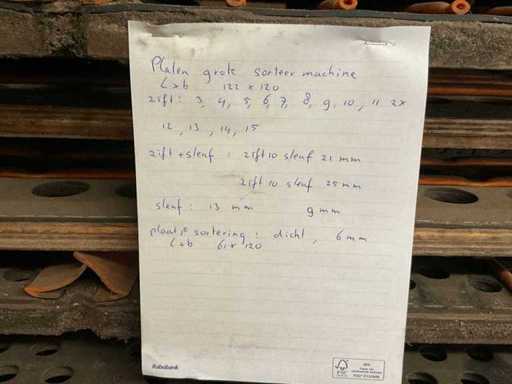 Platen grote sorteer machine
L x b 122 x 120
zift: 3, 4, 5, 6, 7, 8, 9, 10, 11 2x
12, 13, 14, 15
zift + sleuf: zift 10 sleuf 21 mm
zift 10 sleuf 25 mm
sleuf: 13 mm 9 mm
sortering: dicht, 6 mm
L x b 61 x 120
Rabobank
FSC